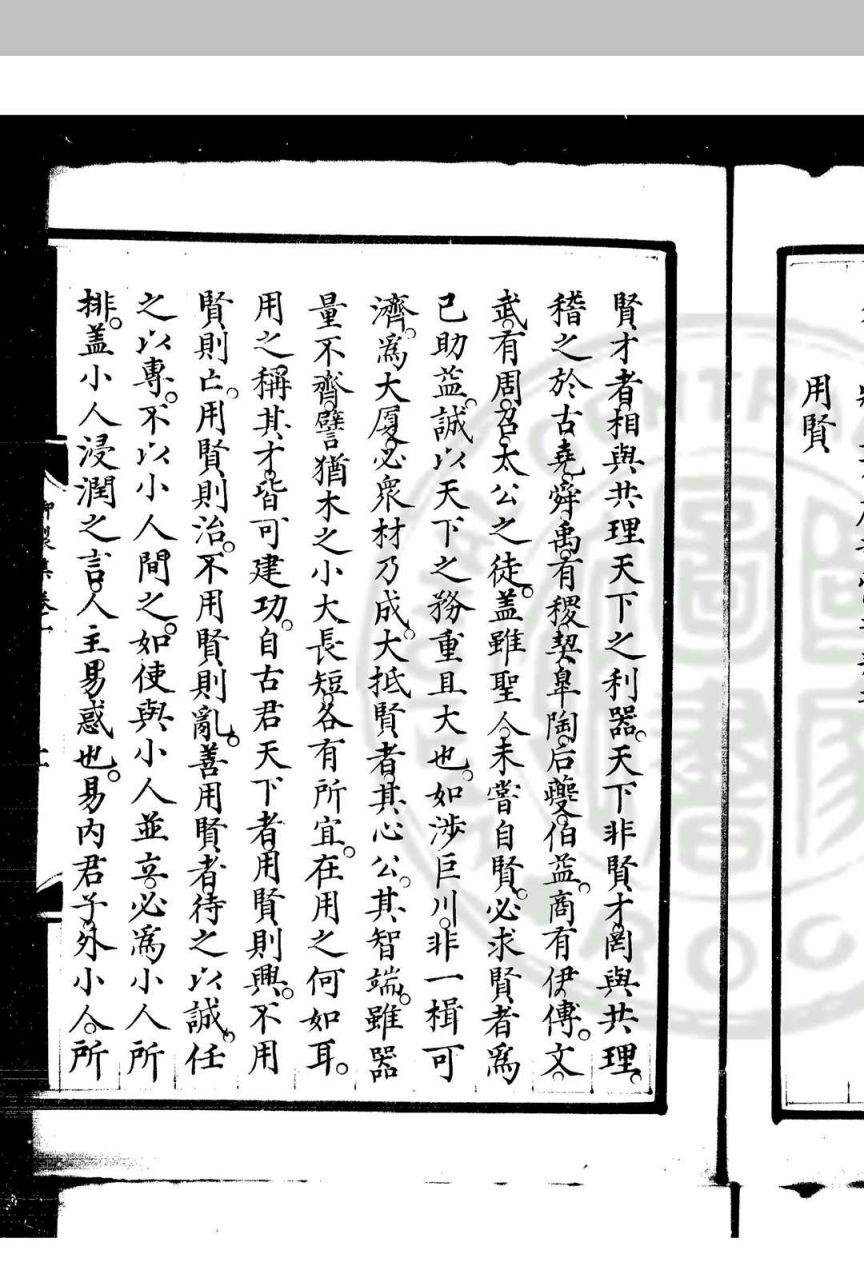 用賢
賢才者相與共理天下之利器。天下非賢才罔與共理。
稽之於古堯舜禹。有稷契皐陶后夔伯益。商有伊傅。文
武。有周召太公之徒。盖雖聖人未嘗自賢。必求賢者為
己助益。誠以天下之務重且大也。如涉巨川。非一楫可
濟。為大厦。必衆材乃成。大抵賢者其心公。其智端。雖器
量不齊。譬猶木之小大長短。各有所宜。在用之何如耳。
用之稱其才。皆可建功。自古君天下者。用賢則興。不用
賢則亡。用賢則治。不用賢則亂。善用賢者。待之以誠。任
之以專。不以小人間之。如使與小人並立。必為小人所
排。盖小人浸潤之言。人主易惑也。易内君子。外小人。所
御製集卷